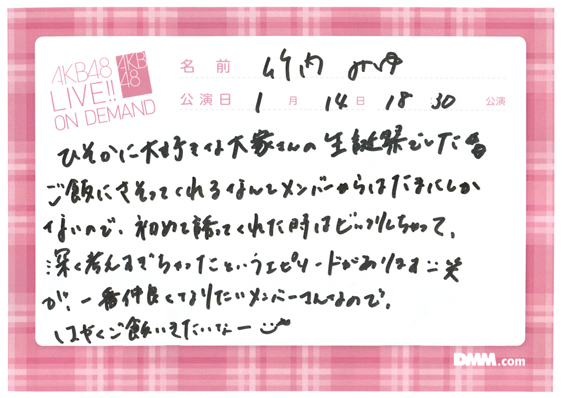 AKB48
LIVE!!
ON DEMAND
AKB
48
名前 竹内 美宥
公演日 1月 14日 18:30 公演
ひそかに大好きな大家さんの生誕祭でした
ご飯にさそってくれるなんてメンバーからはたまにしか
ないので、初めて誘ってくれた時はビックリしちゃって、
深く考えすぎちゃったというエピソードがあります笑
が、一番仲良くなりたいメンバーさんなので、
はやくご飯いきたいなー
DMM.com